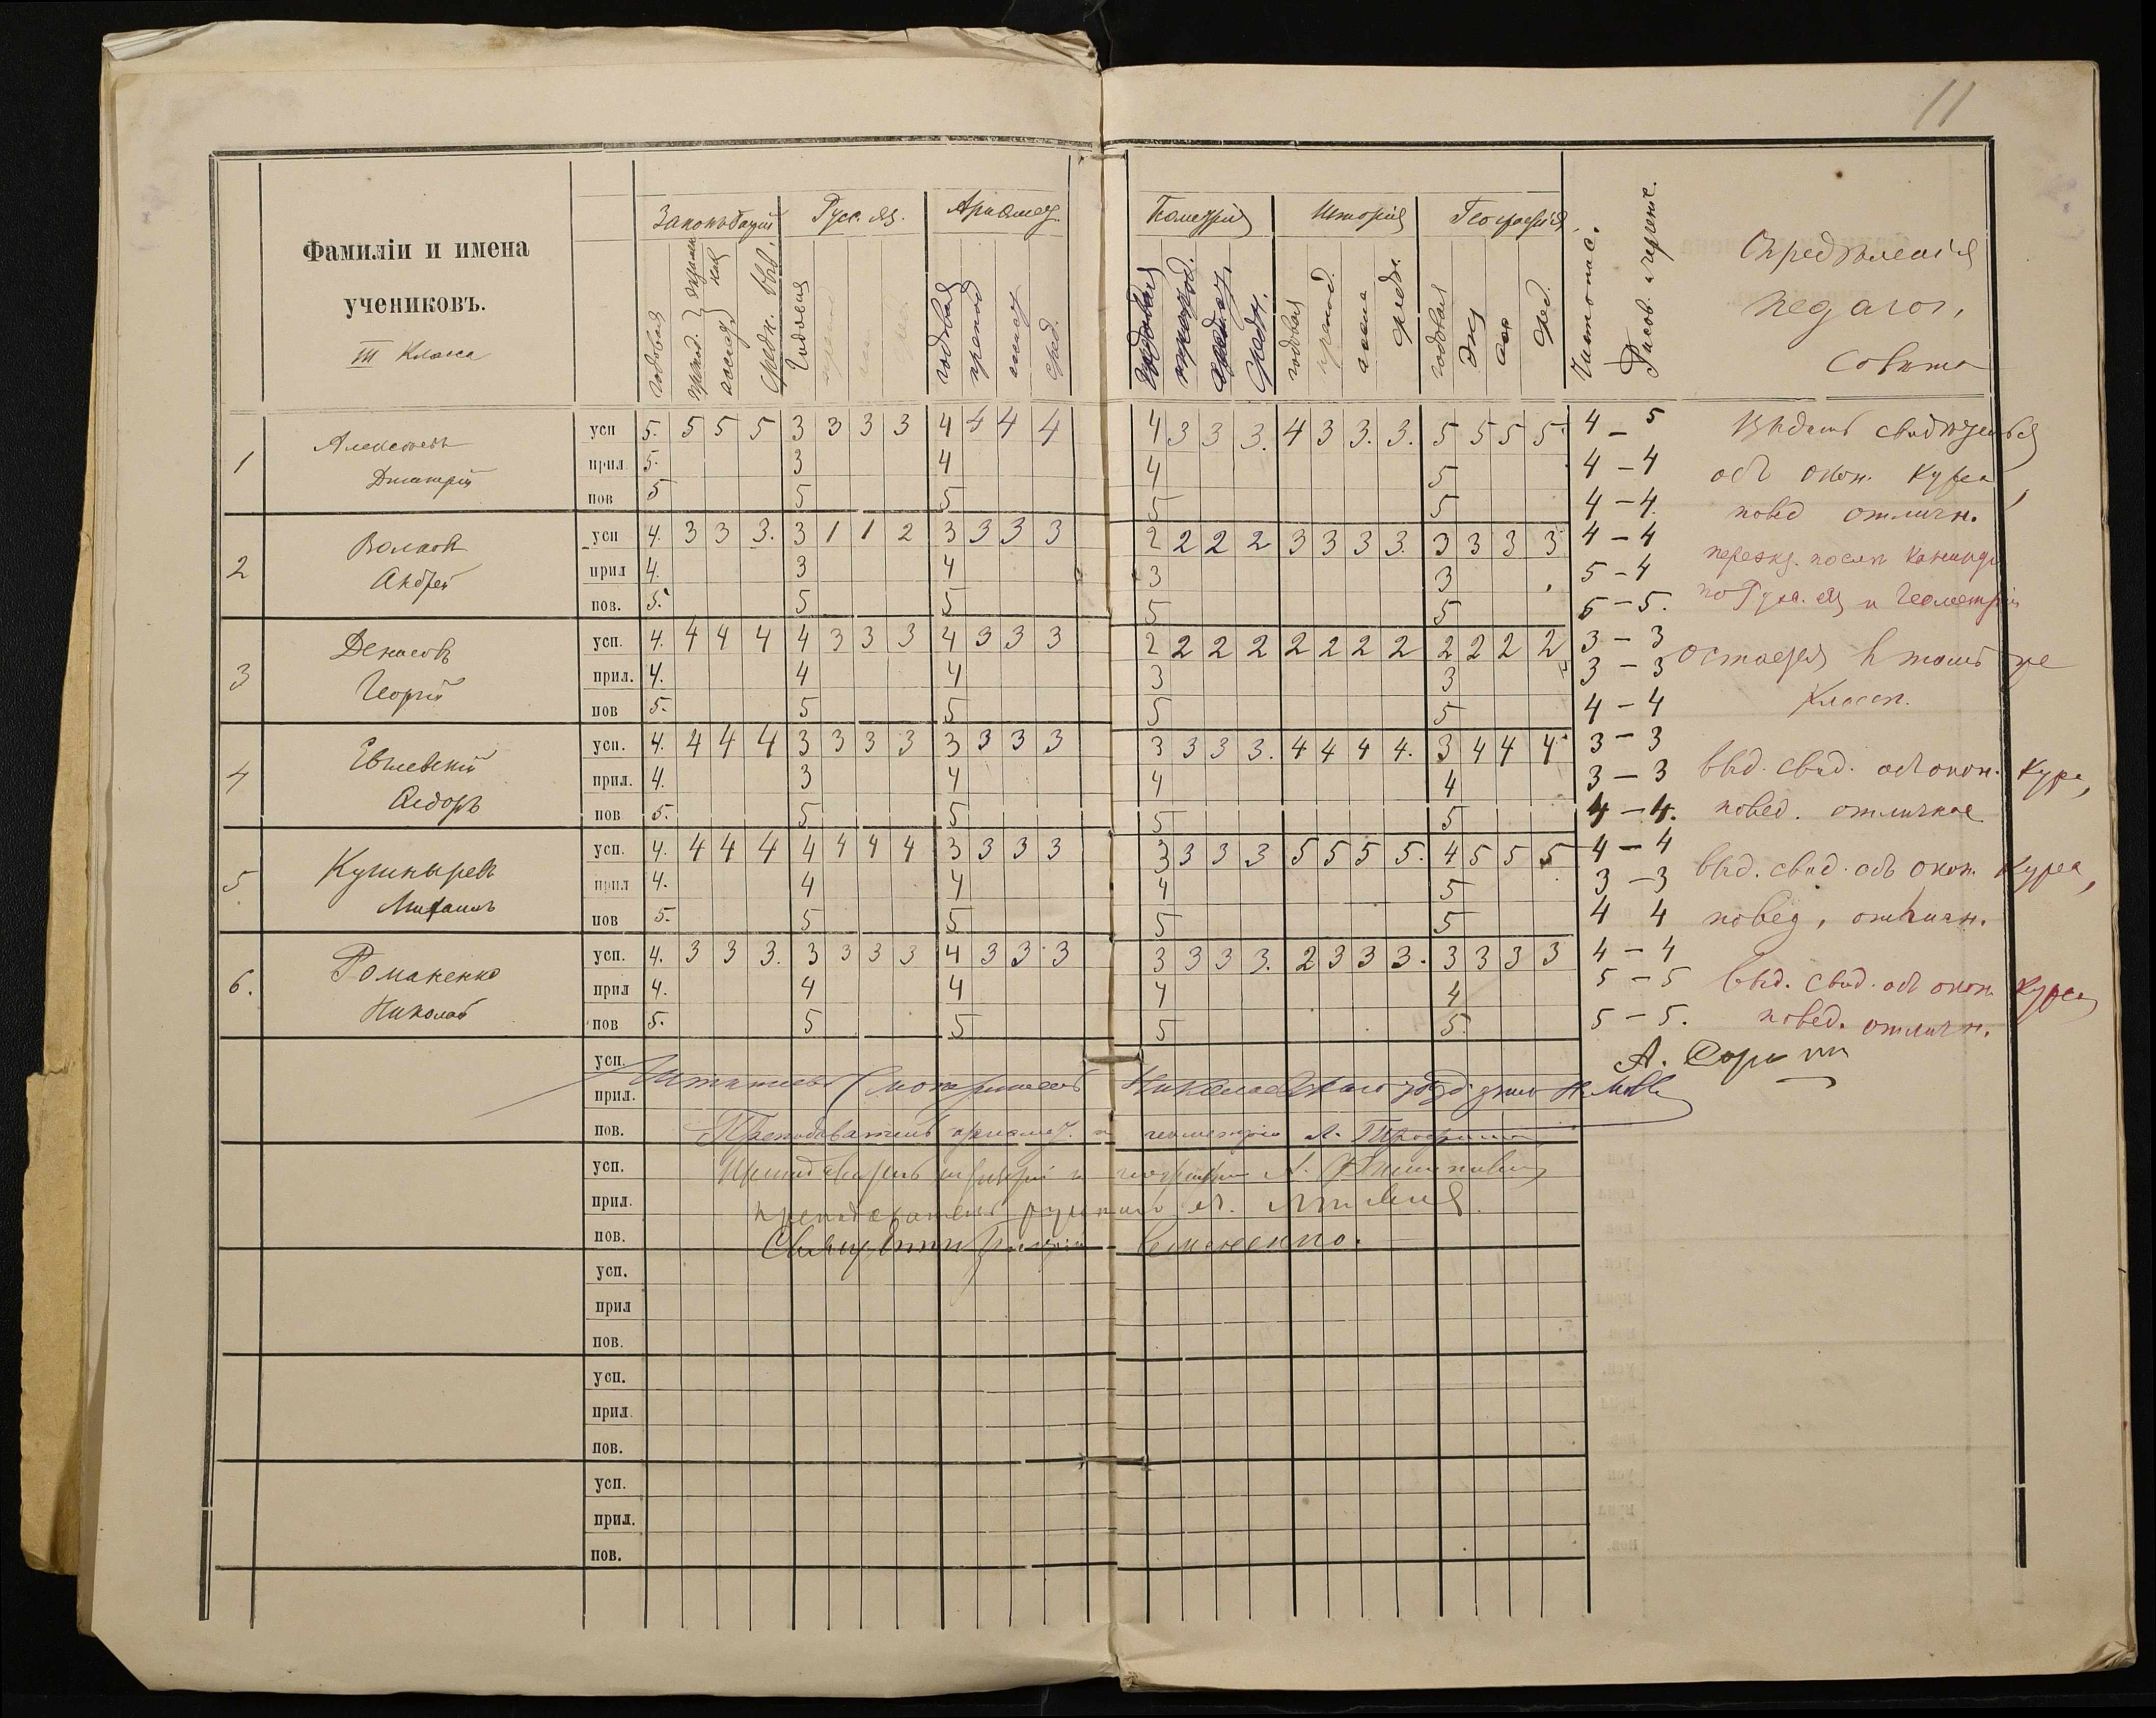 11
Фамиліи и имена
учениковъ.
III Класса
Законъ Божій Русс. яз. Ариѳмет. Геометрія Исторія Географія
Чистопис. Рисов. и черчен.
Опредѣленія
педагог.
Совѣта
годовая препод. ассист. средн. годовая годовая препод. ассист. сред. годовая препод. средн. годовая препод. средн. годовая экз. сред.
1 Алексѣевъ
Дмитрій
усп 5. 5 5 5 3 3 3 3 4 4 4 4 4 3 3 3. 4 3 3. 3. 5 5 5 5 4 – 5 Выдать свидѣтельств
прил. 5. 3 4 4 5 4 – 4 объ окон. курса,
пов 5 5 5 5 5 4 – 4. повед отличн.
2 Волковъ
Андрей
усп 4. 3 3 3. 3 1 1 2 3 3 3 3 2 2 2 2 3 3 3 3. 3 3 3 3 4 – 4 перэкз. послѣ каникул
прил 4. 3 4 3 3 5 – 4 по Русс. яз и Геометріи
пов. 5. 5 5 5 5 5 – 5.
3 Денисовъ
Георгій
усп. 4. 4 4 4 4 3 3 3 4 3 3 3 2 2 2 2 2 2 2 2 2 2 2 2 3 – 3 остается въ томъ же
прил. 4. 4 4 3 3 3 – 3
пов 5. 5 5 5 5 4 – 4 классѣ.
4 Евлевскій
Ѳедоръ
усп. 4. 4 4 4 3 3 3 3 3 3 3 3 3 3 3 3. 4 4 4 4. 3 4 4 4 3 – 3
прил. 4. 3 4 4 4 3 – 3 выд. свид. объ окон. курс,
пов 5. 5 5 5 5 4 – 4. повед. отличное
5 Кушныревъ
Михаилъ
усп. 4. 4 4 4 4 4 4 4 3 3 3 3 3 3 3 3 5 5 5 5. 4 5 5 5 4 – 4
прил 4. 4 4 4 5 3 – 3 выд. свид. объ окон. курса,
пов 5. 5 5 5 5 4 4 повед, отличн.
6. Романенко
Николай
усп. 4. 3 3 3. 3 3 3 3 4 3 3 3 3 3 3 3. 2 3 3 3. 3 3 3 3 4 – 4
прил 4. 4 4 4 4 5 – 5 выд. свид. объ окон. курса
пов 5. 5 5 5 5. 5 – 5. повед. отличн.
усп.
прил. Штатный Смотритель Николаевскаго
пов. Преподаватель ариѳмет. и геометріи А.
усп. Преподаватель исторіи и географіи А.
прил. преподаватель русскаго яз.
пов. Священникъ Григорій Семененко.
усп.
прил
пов.
усп.
прил.
пов.
усп.
прил.
пов.